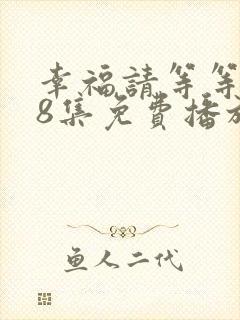 幸福請等等
8集免費播放
鱼人二代